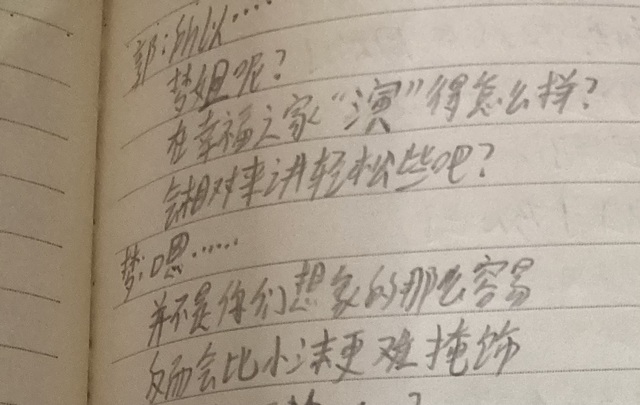 郭:所以……
梦姐呢?
在幸福之家“演”得怎么样?
会相对来讲轻松些吧?
梦:嗯……
并不是你们想象的那么容易
反而会比小沫更难掩饰